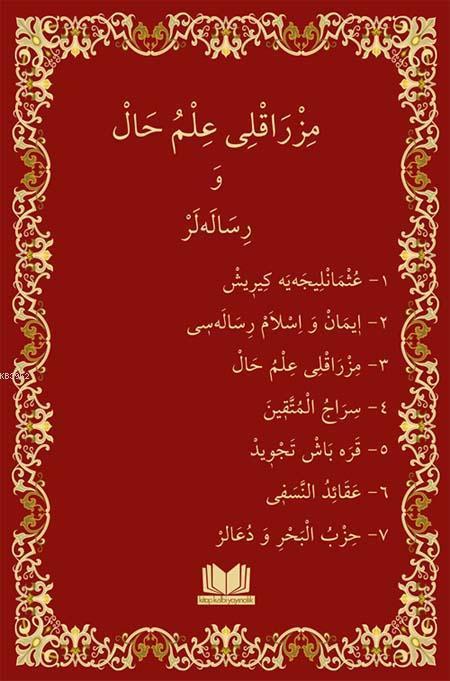 مِزْرَاقْلِى عِلْمُ حَالْ
وَ
رِسَالَه‌لَرْ
١- عُثْمَانْلِيجَه‌يَه كِيرِيشْ
٢- اِيمَانْ وَ اِسْلَامْ رِسَالَه‌سِى
٣- مِزْرَاقْلِى عِلْمُ حَالْ
٤- سِرَاجُ الْمُتَّقِينَ
٥- قَرَه بَاشْ تَجْوِيدْ
٦- عَقَائِدُ النَّسَفِى
٧- حِزْبُ الْبَحْرِ وَ دُعَالَرْ
kitap kalbi yayıncılık